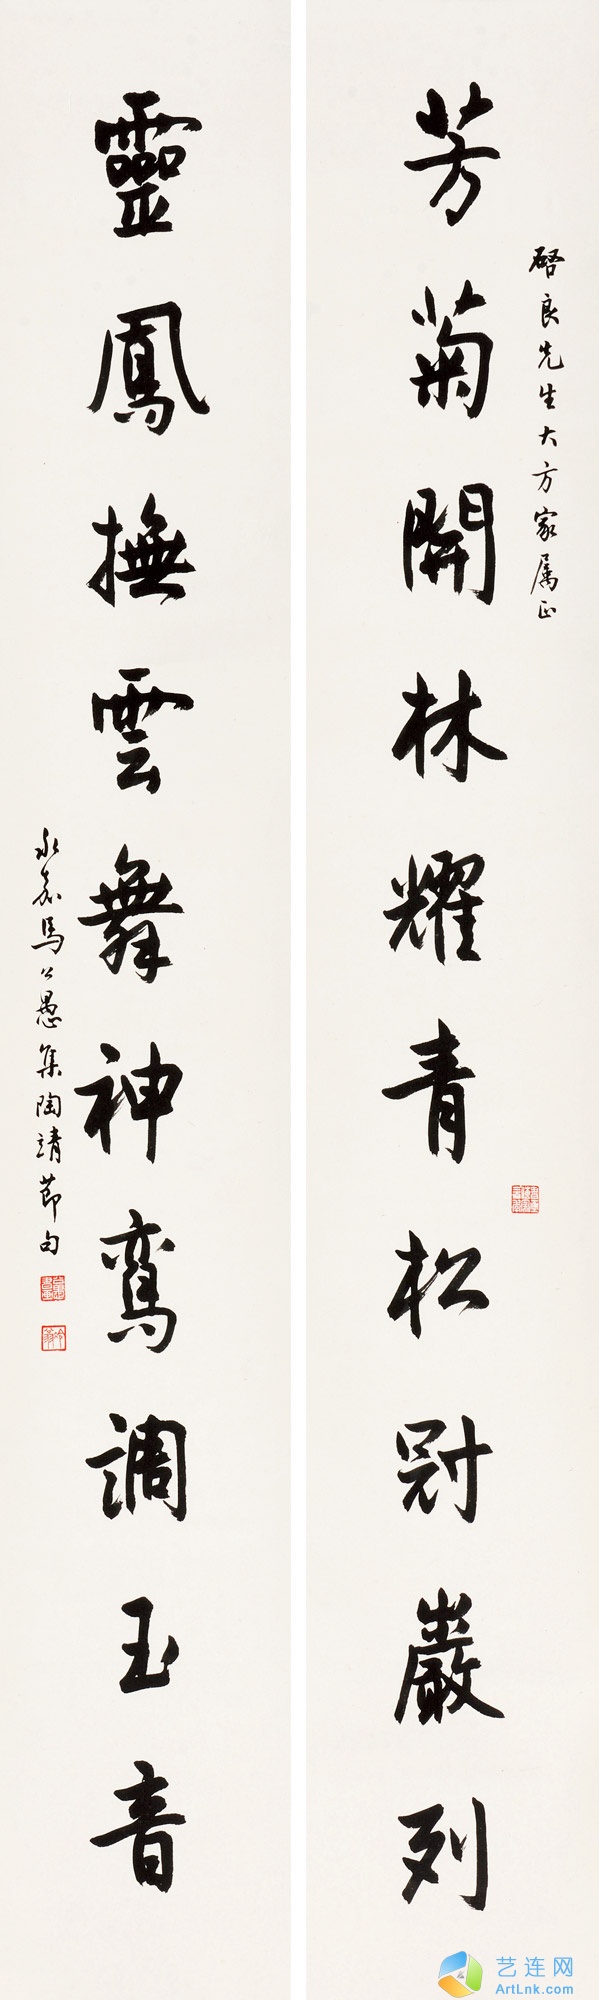 芳菊開林耀青松冠巖列
啓良先生大方家属正
靈鳳撫雲舞神鸞調玉音
永嘉馬公愚集陶靖節句
艺连网
ArtLnk.com